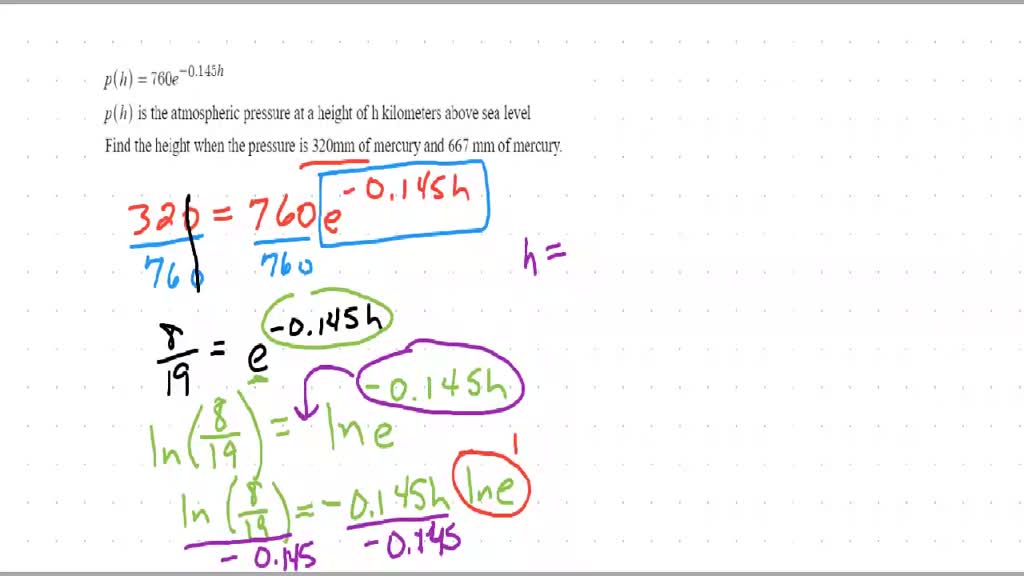 p(h) = 760e^{-0.145h}
p(h) is the atmospheric pressure at a height of h kilometers above sea level
Find the height when the pressure is 320mm of mercury and 667 mm of mercury.
320 = 760 e^{-0.145h}
760 760
h =
8/19 = e^{-0.145h}
ln(8/19) = ln e^{-0.145h}
1
ln(8/19) = -0.145h ln e
-0.145 -0.145